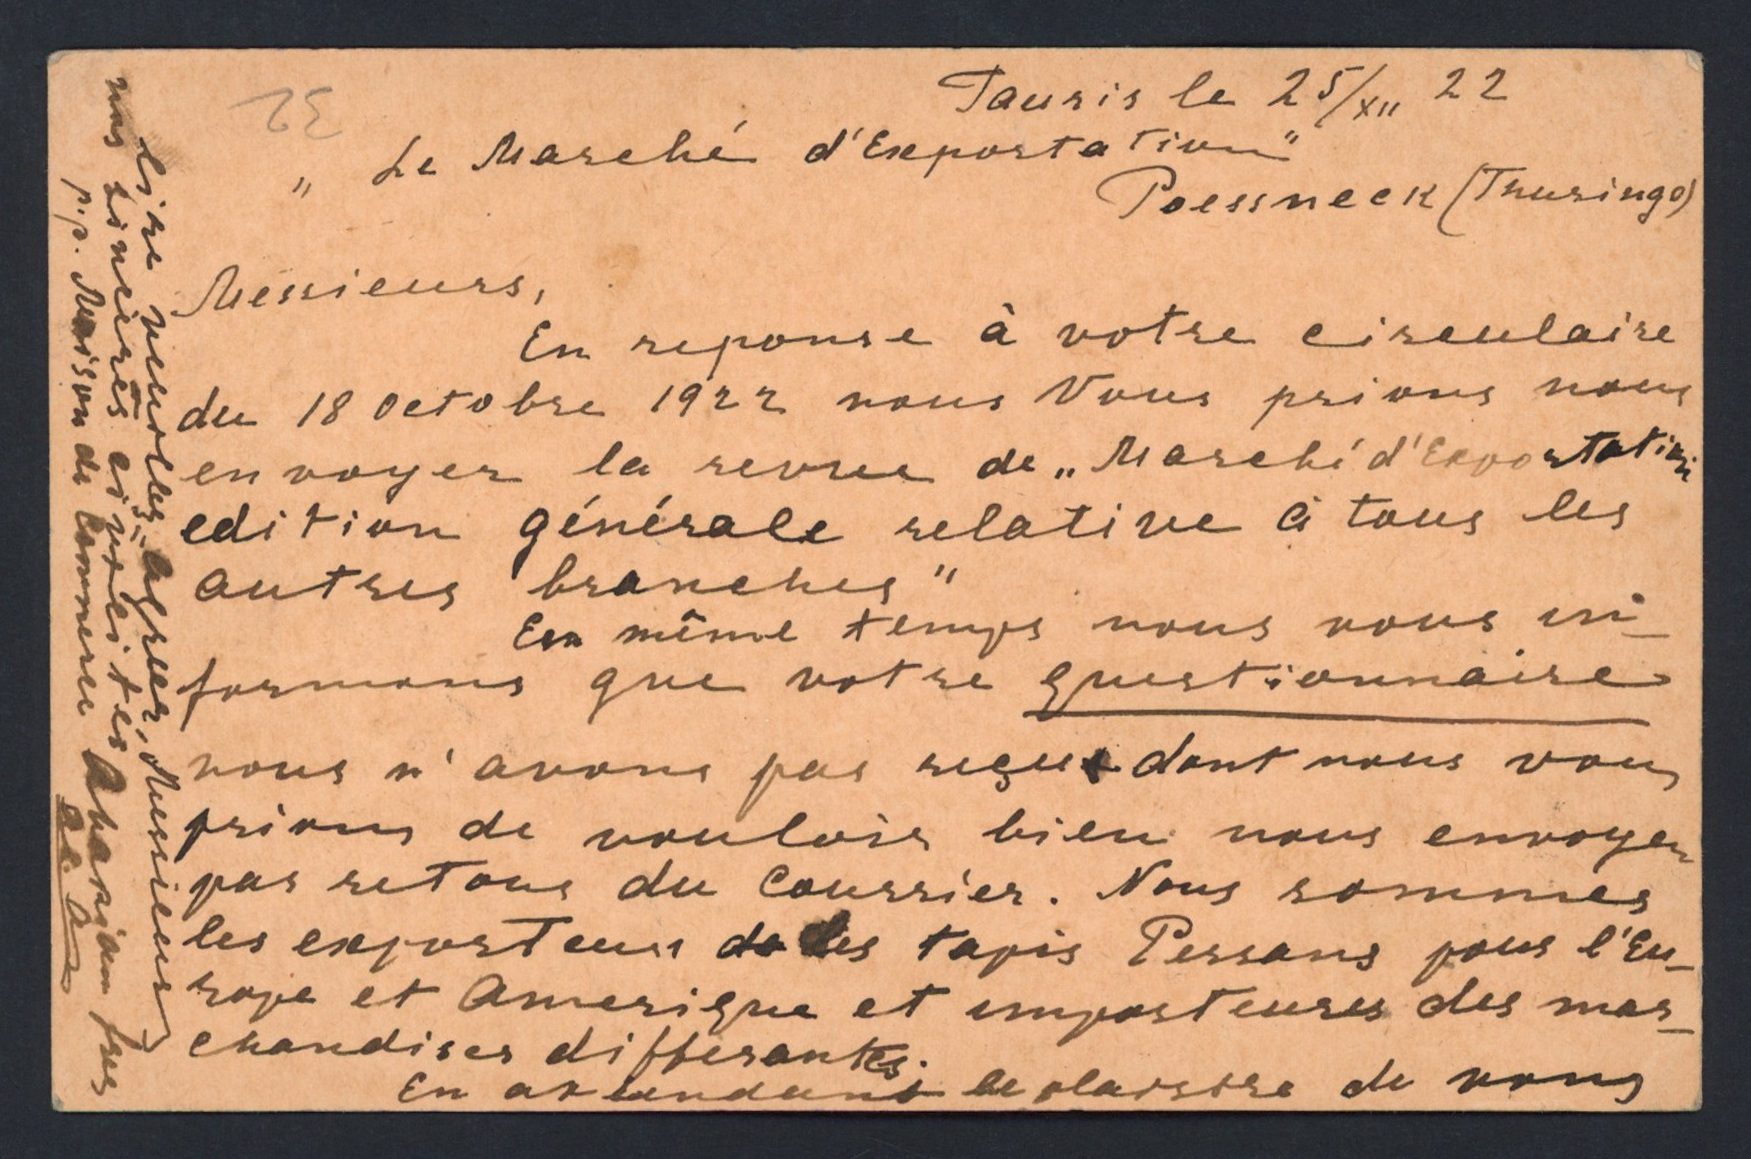 Tauris le 25/XII 22
„ Le Marché d'Exportation"
Poessneck (Thuringe)
Messieurs,
En reponse à votre circulaire
du 18 Octobre 1922 nous Vous prions nous
envoyer la revue de „Marché d'Exportation
edition générale relative à tous les
autres branches"
En même temps nous vous in-
formons que votre questionnaire
nous n'avons pas reçu dont nous vous
prions de vouloir bien nous envoyer
par retour du Courrier. Nous sommes
les exporteurs des tapis Persans pour l'Eu-
rope et Amerique et importeures des mar-
chandises differantes.
En attendant le plaisire de vous
lire agreer, Messieurs,
nos sincères civilités
p.p. Maison de Commerce Abarcian frer
32